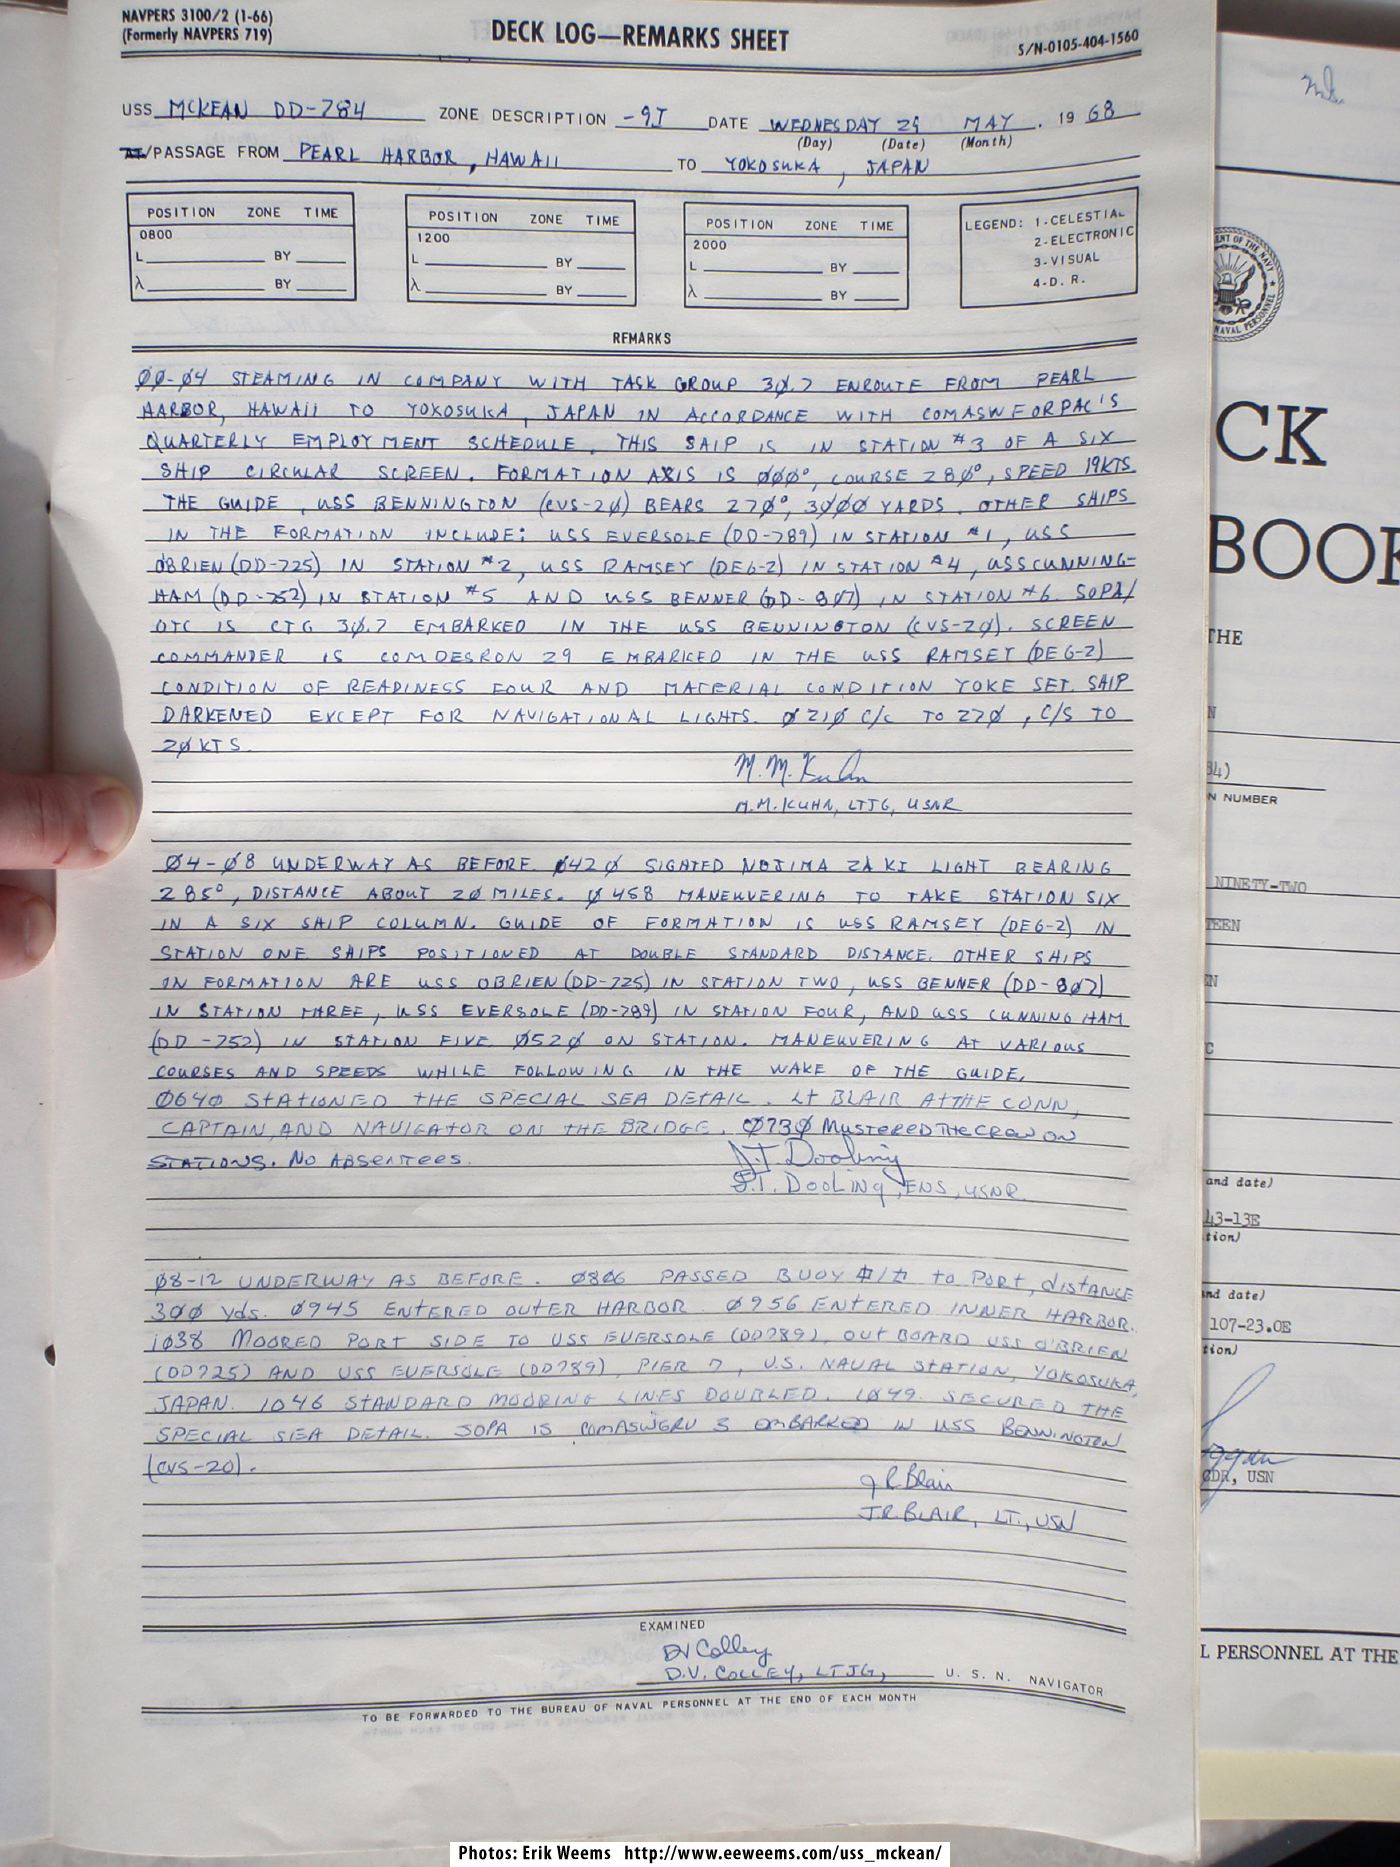 NAVPERS 3100/2 (1-66)
(Formerly NAVPERS 719)
DECK LOG—REMARKS SHEET
S/N-0105-404-1560
USS MCKEAN DD-784 ZONE DESCRIPTION -9I DATE WEDNESDAY 29 MAY . 19 68
(Day) (Date) (Month)
AT/PASSAGE FROM PEARL HARBOR, HAWAII TO YOKOSUKA, JAPAN
POSITION ZONE TIME
0800
L BY
λ BY
POSITION ZONE TIME
1200
L BY
λ BY
POSITION ZONE TIME
2000
L BY
λ BY
LEGEND: 1-CELESTIAL
2-ELECTRONIC
3-VISUAL
4-D. R.
REMARKS
00-04 STEAMING IN COMPANY WITH TASK GROUP 30.7 ENROUTE FROM PEARL
HARBOR, HAWAII TO YOKOSUKA, JAPAN IN ACCORDANCE WITH COMASWFORPAC'S
QUARTERLY EMPLOYMENT SCHEDULE. THIS SHIP IS IN STATION #3 OF A SIX
SHIP CIRCULAR SCREEN. FORMATION AXIS IS 000°, COURSE 280°, SPEED 19KTS
THE GUIDE, USS BENNINGTON (CVS-20) BEARS 270°, 3000 YARDS. OTHER SHIPS
IN THE FORMATION INCLUDE: USS EVERSOLE (DD-789) IN STATION #1, USS
OBRIEN (DD-725) IN STATION #2, USS RAMSEY (DEG-2) IN STATION #4, USS CUNNING-
HAM (DD-752) IN STATION #5 AND USS BENNER (DD-807) IN STATION #6. SOPA/
OTC IS CTG 30.7 EMBARKED IN THE USS BENNINGTON (CVS-20). SCREEN
COMMANDER IS COMDESRON 29 EMBARKED IN THE USS RAMSEY (DEG-2)
CONDITION OF READINESS FOUR AND MATERIAL CONDITION YOKE SET. SHIP
DARKENED EXCEPT FOR NAVIGATIONAL LIGHTS. 0210 C/C TO 270, C/S TO
20KTS.
M. M. Kuhn
M.M. KUHN, LTJG, USNR
04-08 UNDERWAY AS BEFORE. 0420 SIGHTED NOJIMA ZAKI LIGHT BEARING
285°, DISTANCE ABOUT 20 MILES. 0458 MANEUVERING TO TAKE STATION SIX
IN A SIX SHIP COLUMN. GUIDE OF FORMATION IS USS RAMSEY (DEG-2) IN
STATION ONE SHIPS POSITIONED AT DOUBLE STANDARD DISTANCE. OTHER SHIPS
IN FORMATION ARE USS OBRIEN (DD-725) IN STATION TWO, USS BENNER (DD-807)
IN STATION THREE, USS EVERSOLE (DD-789) IN STATION FOUR, AND USS CUNNINGHAM
(DD-752) IN STATION FIVE 0520 ON STATION. MANEUVERING AT VARIOUS
COURSES AND SPEEDS WHILE FOLLOWING IN THE WAKE OF THE GUIDE.
0640 STATIONED THE SPECIAL SEA DETAIL. LT BLAIR AT THE CONN,
CAPTAIN, AND NAVIGATOR ON THE BRIDGE. 0730 MUSTERED THE CREW ON
STATIONS. NO ABSENTEES.
J.T. Dooling
J.T. DOOLING, ENS, USNR
08-12 UNDERWAY AS BEFORE. 0806 PASSED BUOY #1 TO PORT, DISTANCE
300 YDS. 0945 ENTERED OUTER HARBOR 0956 ENTERED INNER HARBOR.
1038 MOORED PORT SIDE TO USS EVERSOLE (DD789), OUTBOARD USS O'BRIEN
(DD725) AND USS EVERSOLE (DD789), PIER 7, U.S. NAVAL STATION, YOKOSUKA,
JAPAN. 1046 STANDARD MOORING LINES DOUBLED. 1049. SECURED THE
SPECIAL SEA DETAIL. SOPA IS COMASWGRU 3 EMBARKED IN USS BENNINGTON
(CVS-20).
J R Blair
J.R. BLAIR, LT., USN
EXAMINED
DV Colley
D.V. COLLEY, LTJG, U. S. N. NAVIGATOR
TO BE FORWARDED TO THE BUREAU OF NAVAL PERSONNEL AT THE END OF EACH MONTH
NAVAL PERSONNEL
CK
BOOK
THE
84)
N NUMBER
NINETY-TWO
TEEN
and date)
43-13E
tion)
nd date)
107-23.0E
tion)
CDR, USN
L PERSONNEL AT THE
Photos: Erik Weems http://www.eeweems.com/uss_mckean/